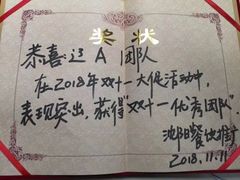 奖状
恭喜过 A 团队
在2018年双十一大促活动中,
表现突出,获得"双十一优秀团队"
沈阳餐饮街
2018.11.11